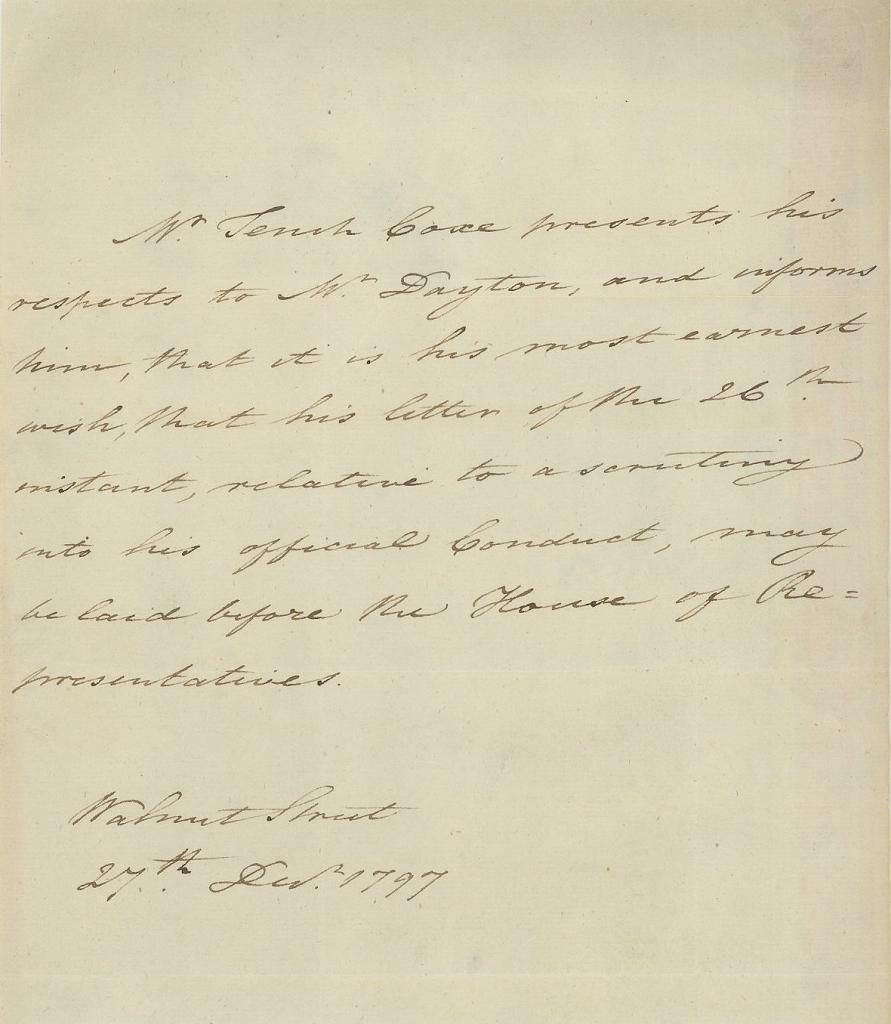 Mr. Tench Coxe presents his
respects to Mr. Dayton, and informs
him, that it is his most earnest
wish, that his letter of the 26th
instant, relative to a scrutiny
into his official Conduct, may
be laid before the House of Re=
presentatives.
Walnut Street
27th Decr. 1797